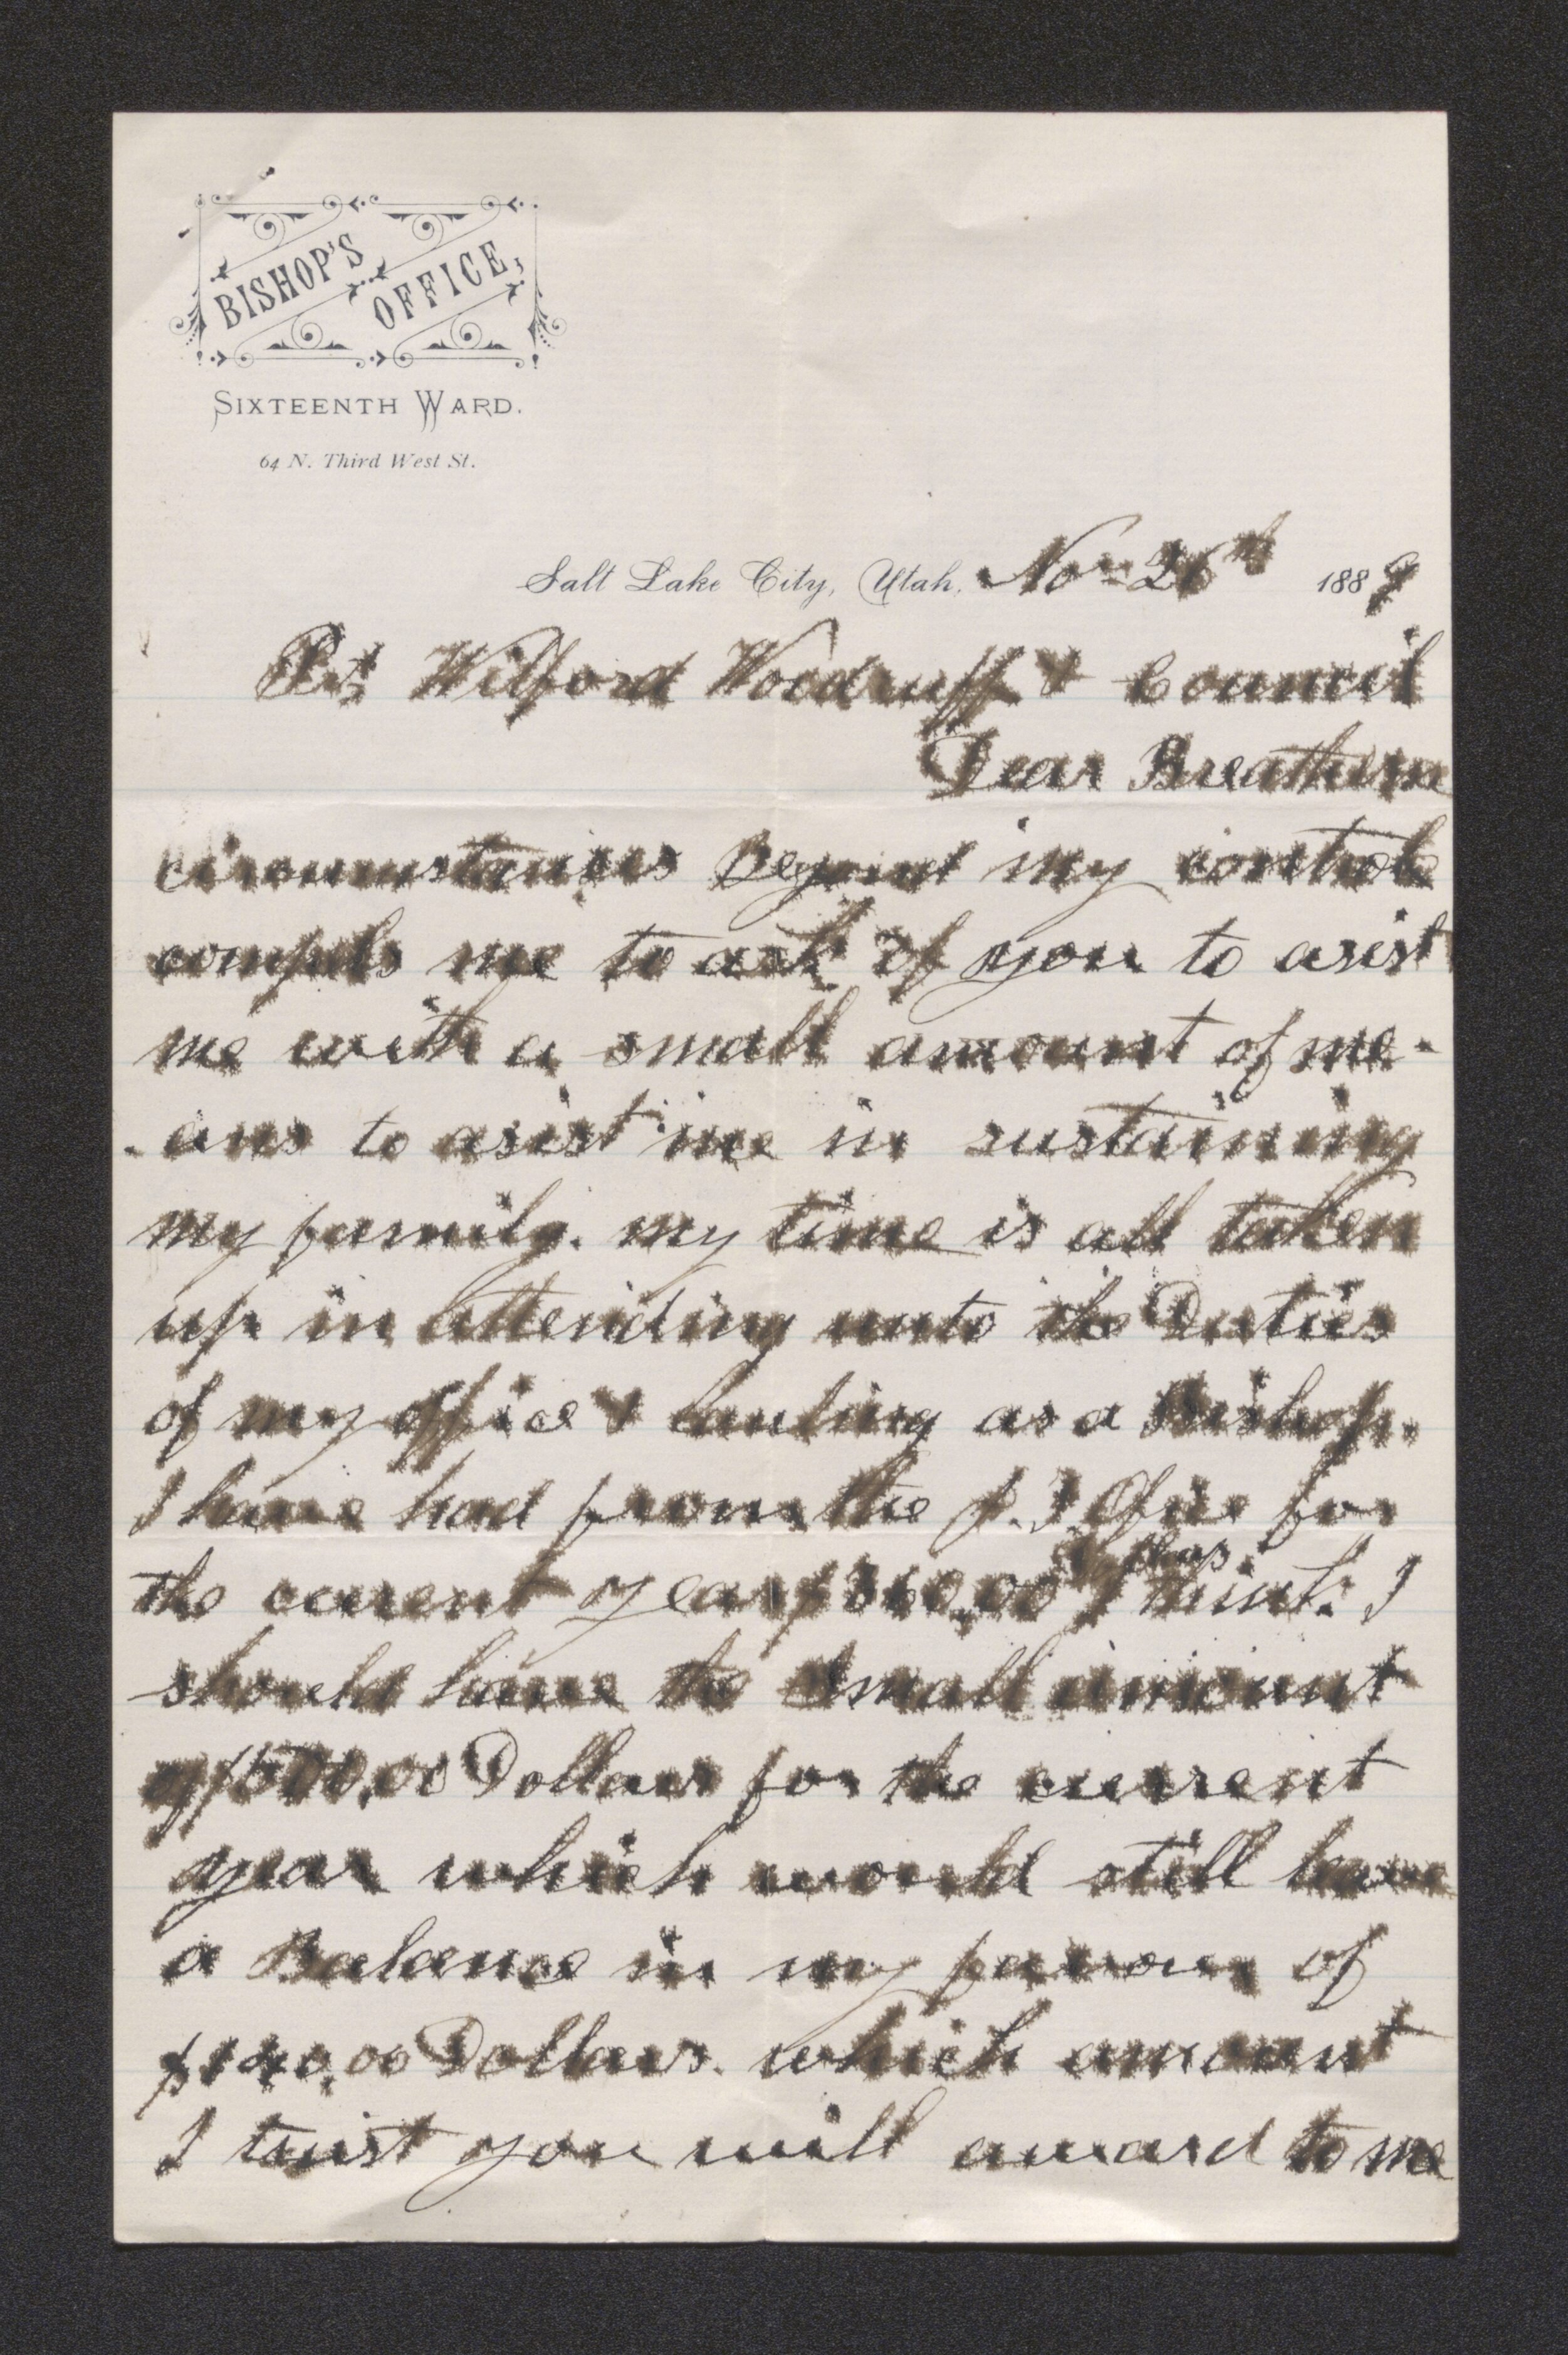 BISHOP'S OFFICE,
SIXTEENTH WARD.
64 N. Third West St.
Salt Lake City, Utah. Nov 26th 1889
Wilford Woodruff & Council
Dear Breathern
circumstances Beyond my control
compels me to ask of you to asist
me with a small amount of me-
-ans to asist me in sustaining
my family. my time is all taken
up in attending unto the Duties
of my office & cauling as a Bishop.
I have had from the P. T. Ofice for
the curent year $360.00 I think. I
should have the small amount
of $500.00 Dollars for the current
year which would still leave
a Balance in my favour of
$140.00 Dollars. which amount
I trust you will award to me